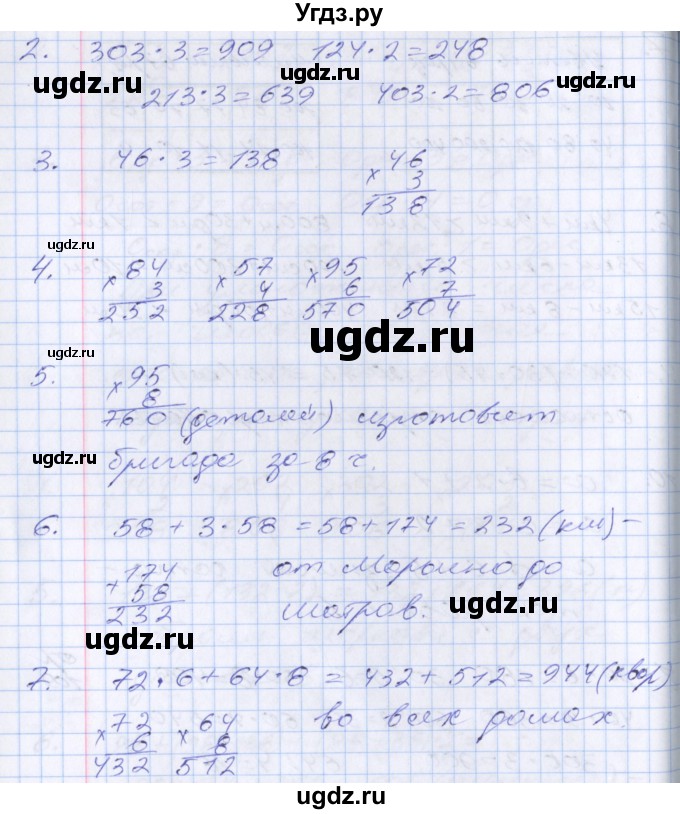 Угдз.ру
2. 303·3=909 124·2=248
ugdz.ru ugdz.ru
213·3=639 403·2=806
3. 46·3=138
× 46
3
138
ugdz.ru
4. × 84 × 57 × 95 × 72
3 4 6 7
252 228 570 504
ugdz.ru
5. × 95
8
ugdz.ru
760 (деталей) изготовит
бригада за 8 ч.
ugdz.ru ugdz.ru
6. 58 + 3·58 = 58 + 174 = 232 (км) –
+ 174 от Марьино до
58
232 Шатров.
ugdz.ru ugdz.ru
ugdz.ru
7. 72·6 + 64·8 = 432 + 512 = 944 (квар)
× 72 × 64 во всех домах.
6 8
432 512
ugdz.ru
ugdz.ru